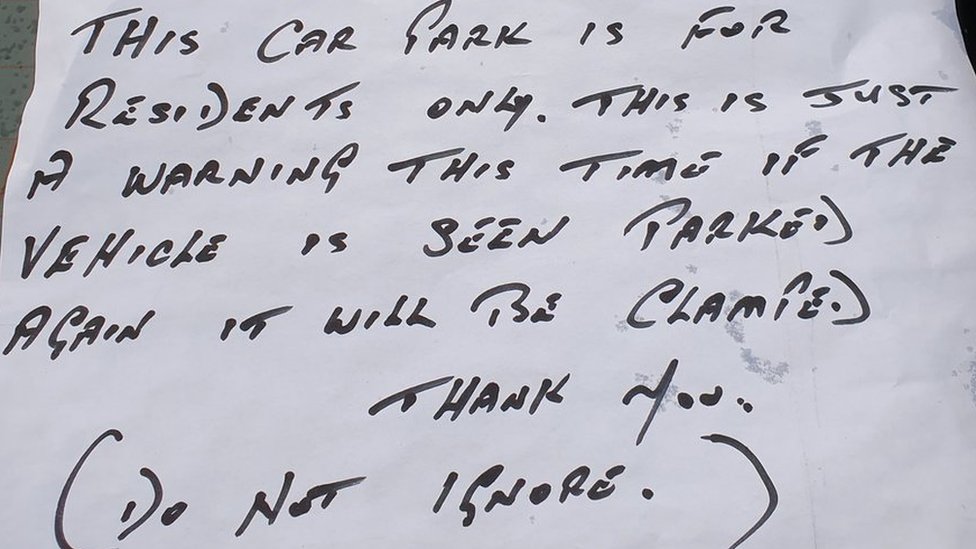 THIS CAR PARK IS FOR
RESIDENTS ONLY. THIS IS JUST
A WARNING THIS TIME IF THE
VEHICLE IS SEEN PARKED
AGAIN IT WILL BE CLAMPED.
THANK YOU.
(DO NOT IGNORE.)